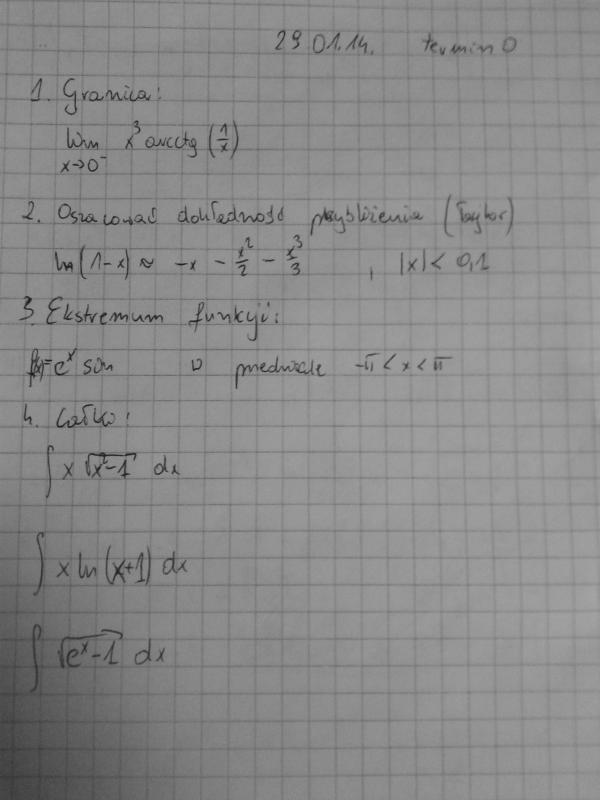 29.01.14. termin 0
1. Granica:
lim x³ arcctg (1/x)
x→0⁻
2. Oszacować dokładność przybliżenia (Taylor)
ln(1-x) ≈ -x - x²/2 - x³/3 , |x| < 0,1
3. Ekstremum funkcji:
f(x)=eˣ sin w przedziale -π < x < π
4. Całka:
∫ x √(x²-1) dx
∫ x ln(x+1) dx
∫ √(eˣ-1) dx